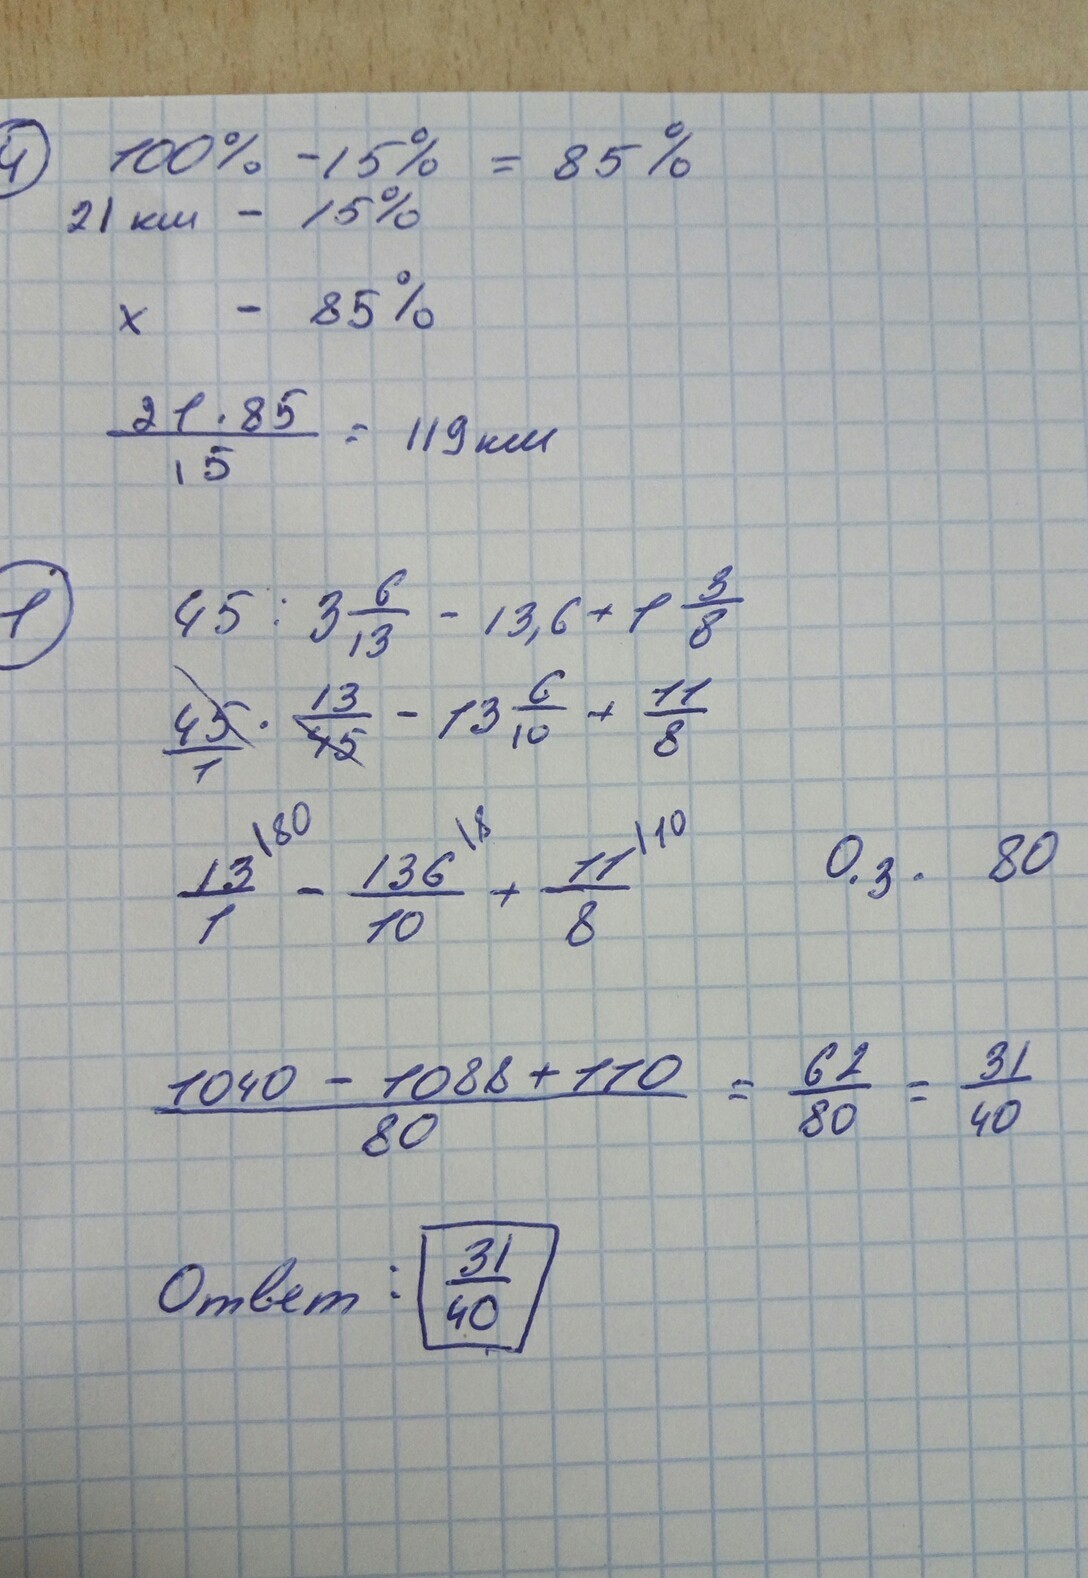 4) 100% - 15% = 85%
21 км - 15%
x - 85%
21 · 85 / 15 = 119 км
1) 45 : 3 6/13 - 13,6 + 1 3/8
45/1 · 13/45 - 13 6/10 + 11/8
13/1 \80 - 136/10 \8 + 11/8 \10 О.з. 80
1040 - 1088 + 110 / 80 = 62/80 = 31/40
Ответ: 31/40